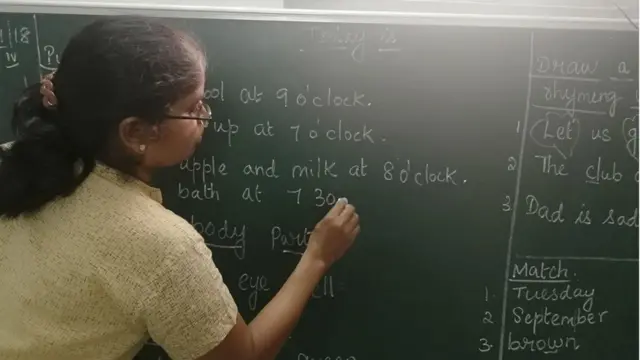 18
IV
Today is
at 9 o'clock.
up at 7 o'clock.
apple and milk at 8 o'clock.
bath at 7 30
body Part
eye
Draw a
rhyming
1 Let us
2 The club
3 Dad is sad
Match.
1. Tuesday
2 September
3. brown